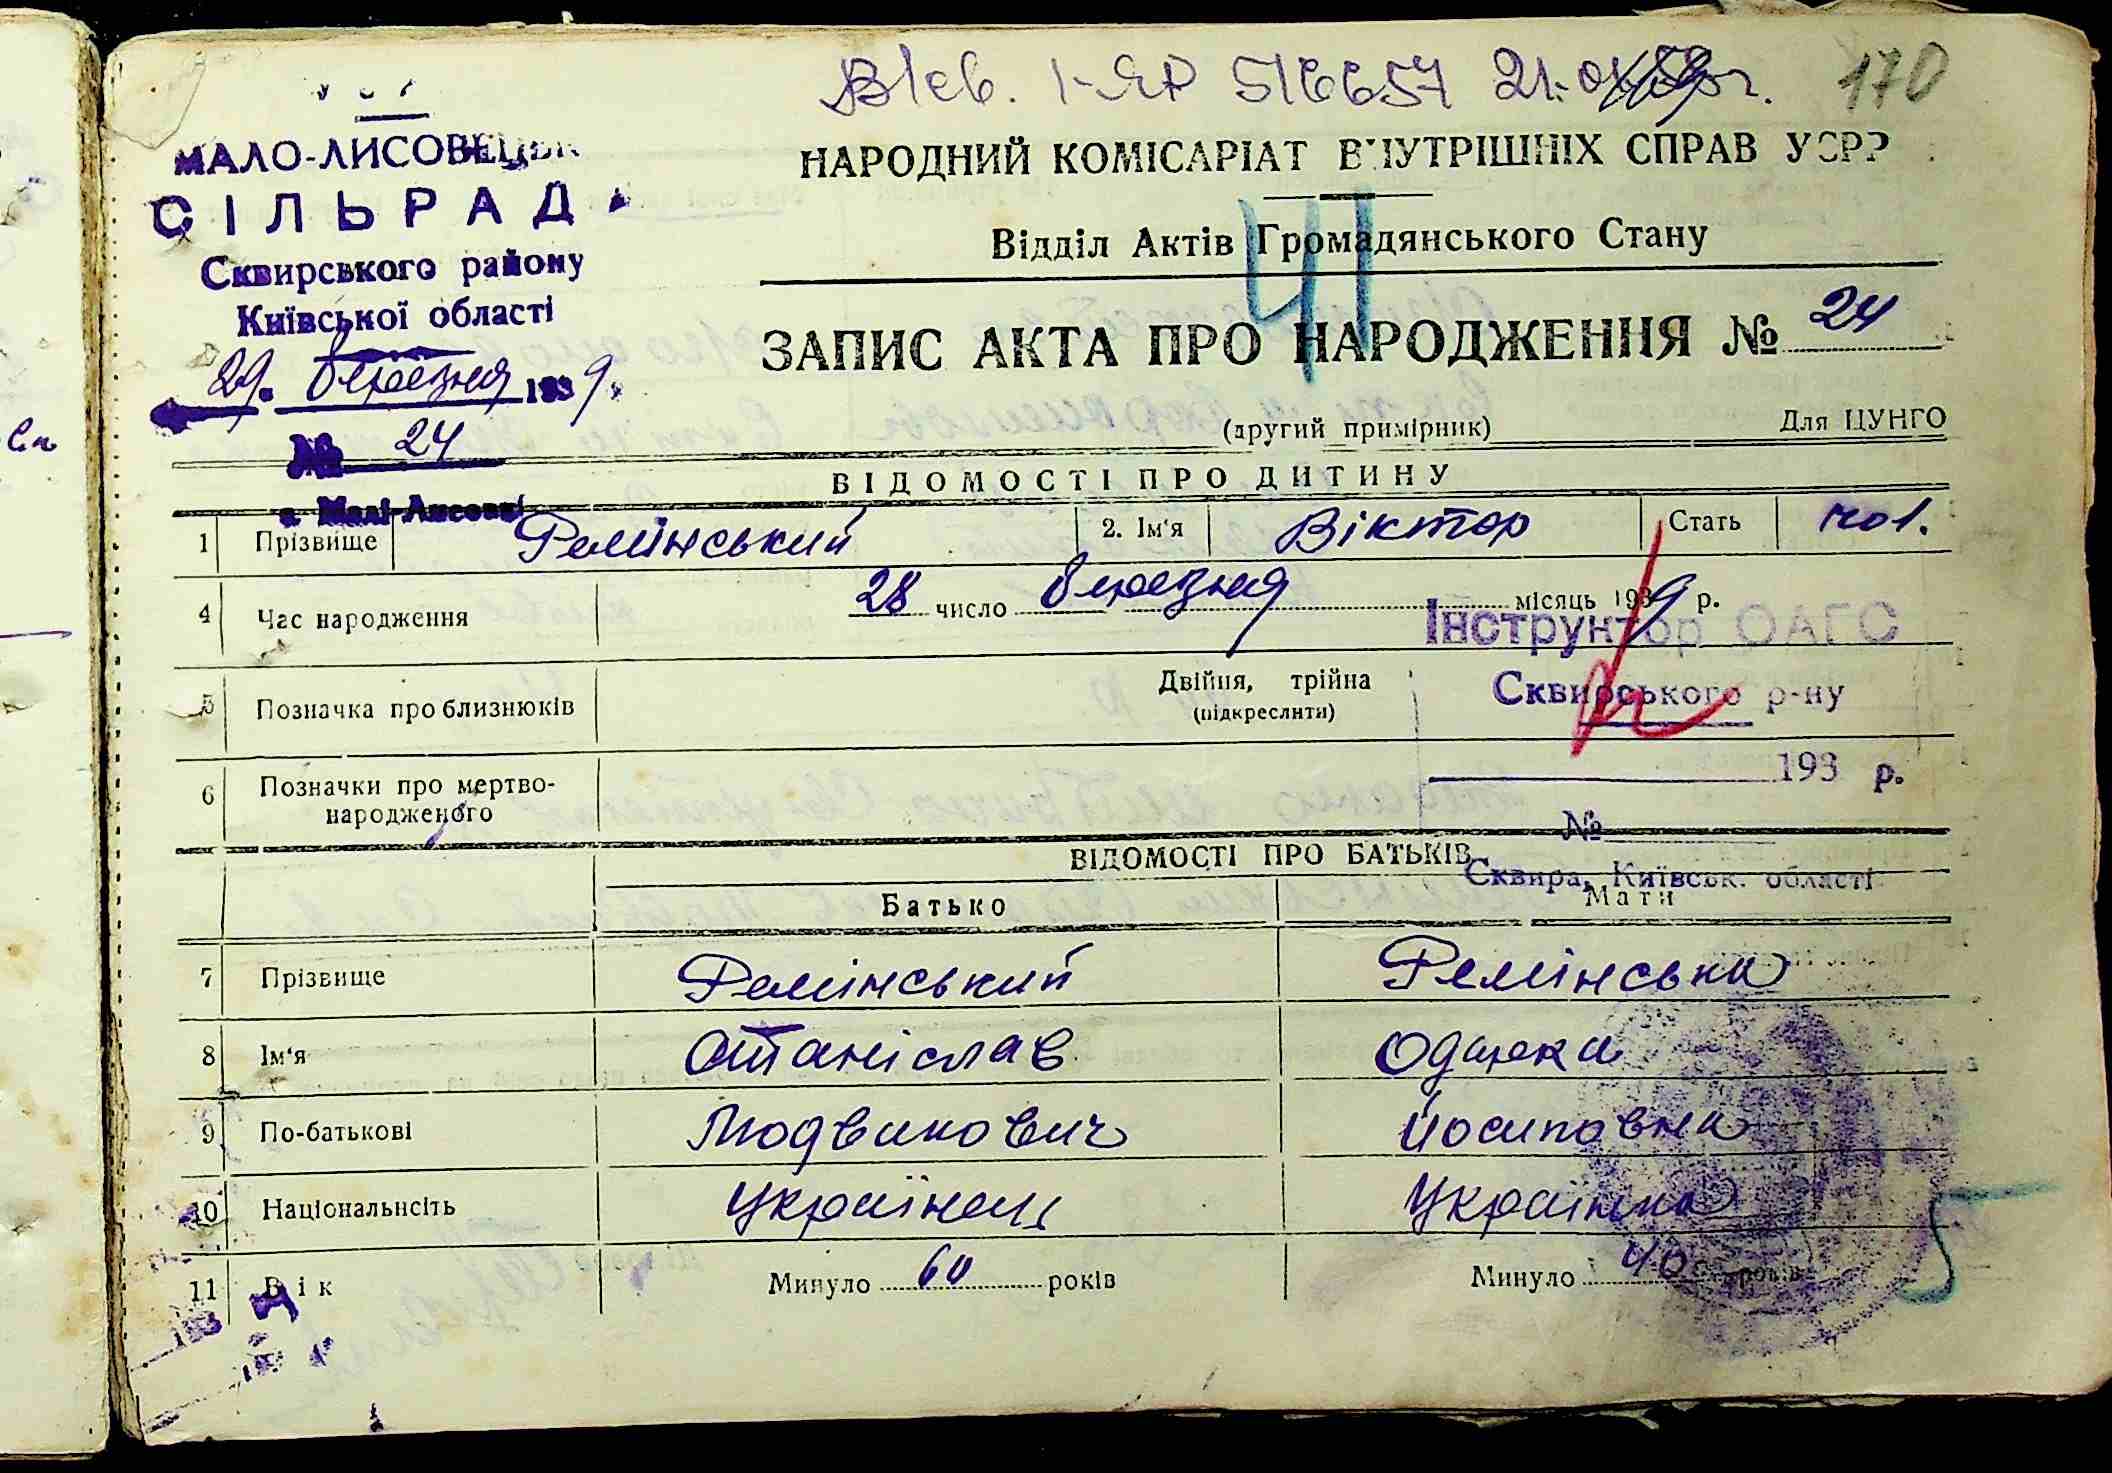 170
НАРОДНИЙ КОМІСАРІАТ ВНУТРІШНІХ СПРАВ УСРР
Відділ Актів Громадянського Стану
41
ЗАПИС АКТА ПРО НАРОДЖЕННЯ № 24
(другий примірник) Для ЦУНГО
УСРР
МАЛО-ЛИСОВЕЦЬК
СІЛЬРАДА
Сквирського району
Київської області
29. березня 1939.
№ 24
с. Малі-Лисовці
ВІДОМОСТІ ПРО ДИТИНУ
1 Прізвище Ремінський 2. Ім‘я Віктор Стать чол.
4 Час народження 28 число березня місяць 1939 р.
Інструктор ОАГС
5 Позначка про близнюків Двійня, трійна
(підкреслити)
Сквирського р-ну
6 Позначки про мертво-
народженого
193 р.
№
ВІДОМОСТІ ПРО БАТЬКІВ
Сквира, Київськ. області
Батько Мати
7 Прізвище Ремінський Ремінська
8 Ім‘я Станіслав Одарка
9 По-батькові Людвикович Йосиповна
10 Національнсіть Українець Українка
11 Вік Минуло 60 років Минуло 40 років